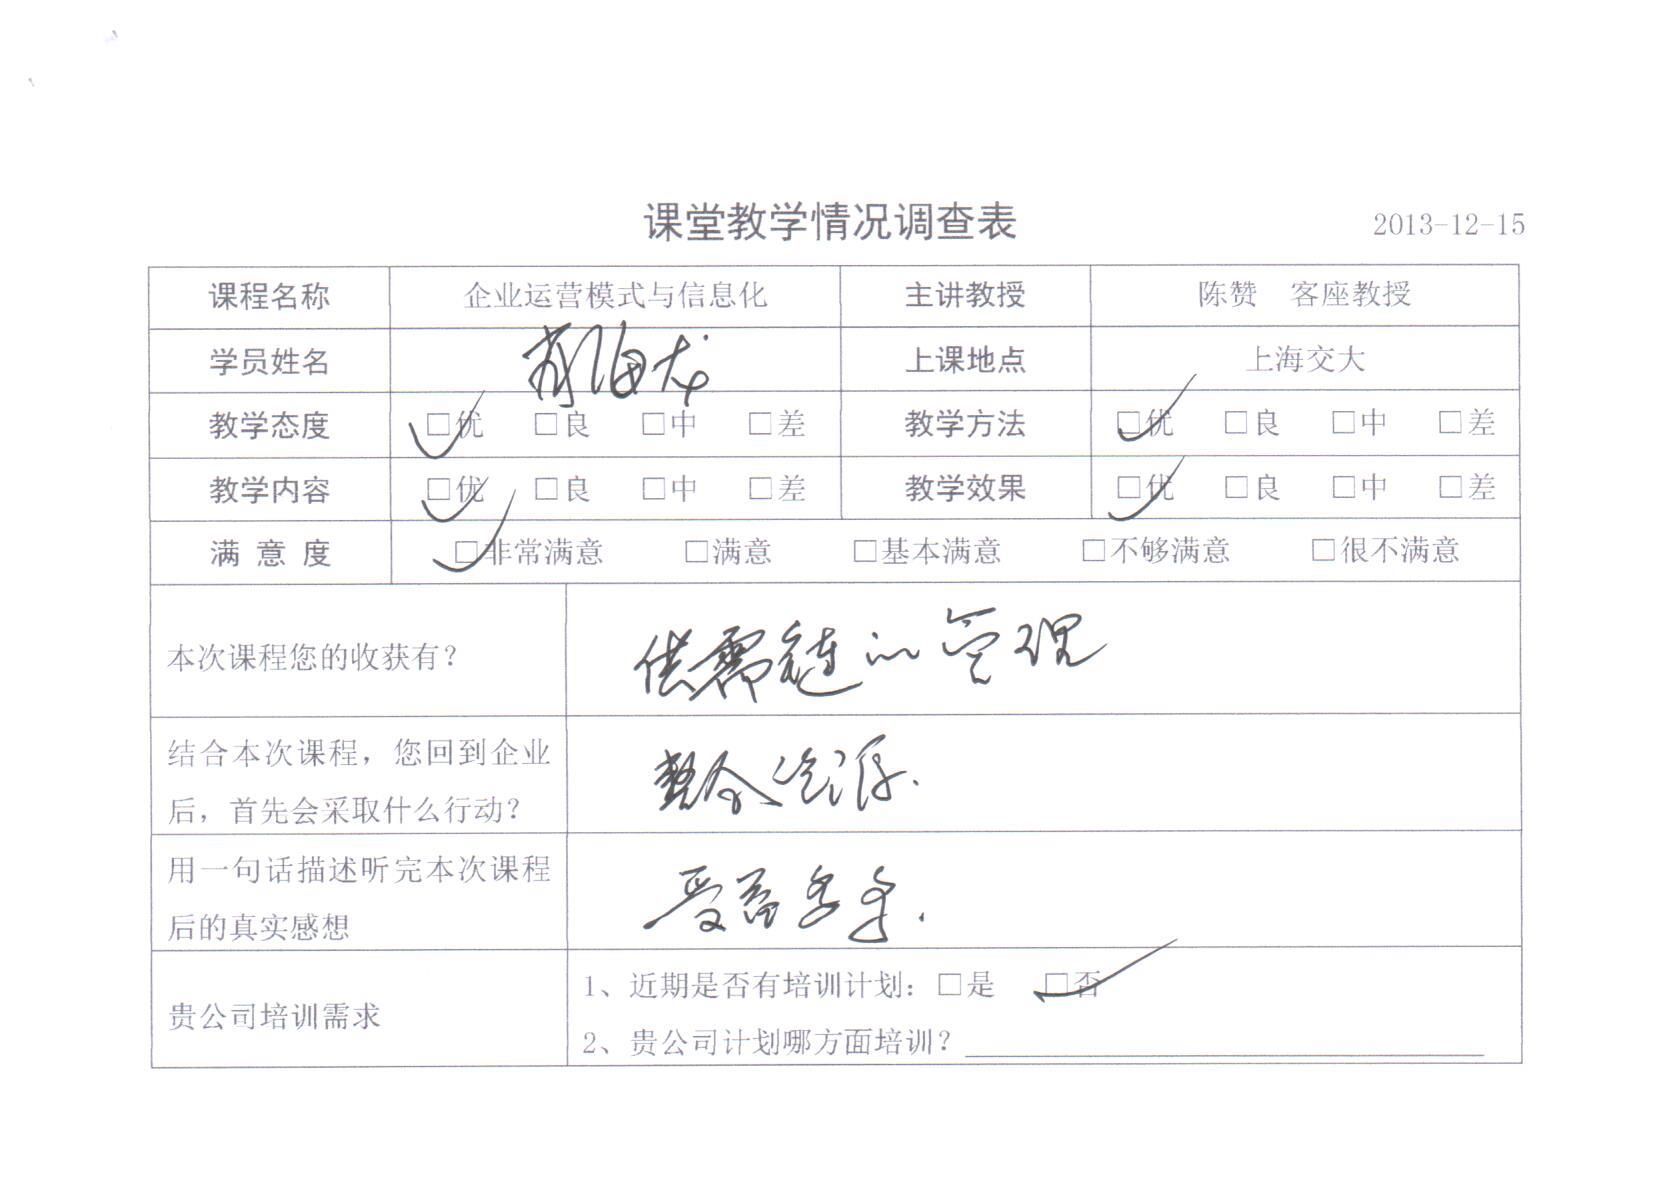 课堂教学情况调查表 2013-12-15
课程名称 企业运营模式与信息化 主讲教授 陈赞 客座教授
学员姓名 肖海龙 上课地点 上海交大
教学态度 □优 □良 □中 □差 教学方法 □优 □良 □中 □差
教学内容 □优 □良 □中 □差 教学效果 □优 □良 □中 □差
满 意 度 □非常满意 □满意 □基本满意 □不够满意 □很不满意
本次课程您的收获有？ 供需链的管理
结合本次课程，您回到企业
后，首先会采取什么行动？
整合资源.
用一句话描述听完本次课程
后的真实感想
受益多多.
贵公司培训需求
1、近期是否有培训计划：□是 □否
2、贵公司计划哪方面培训？